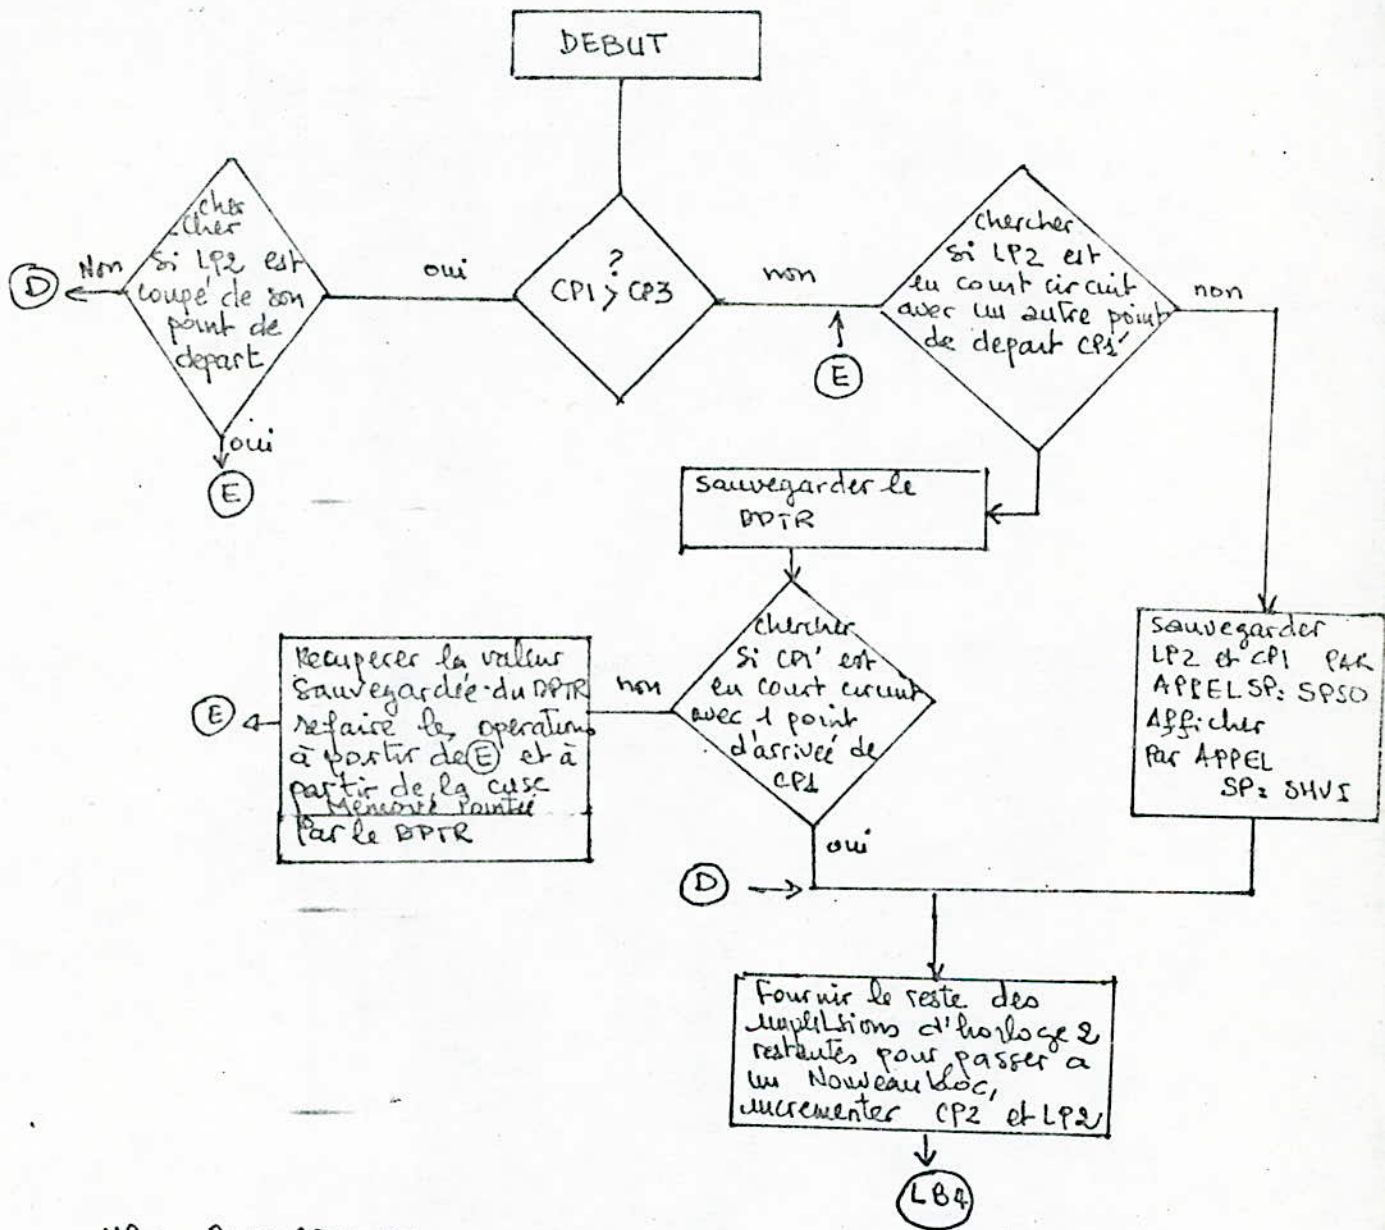 DEBUT
cher
cher
Si LP2 est
coupé de son
point de
depart
Non
D
oui
E
oui
?
CP1 > CP3
non
E
chercher
Si LP2 est
en court circuit
avec un autre point
de depart CP1'
non
Sauvegarder le
DPTR
chercher
Si CP1' est
en court circuit
avec 1 point
d'arrivée de
CP1
non
oui
Recuperer la valeur
Sauvegardée du DPTR
refaire les operations
à partir de E et à
partir de la case
Mémoire Pointée
Par le DPTR
E
Sauvegarder
LP2 et CP1 PAR
APPEL SP: SPSO
Afficher
Par APPEL
SP: SHVI
D
Fournir le reste des
impulsions d'horloge 2
restantes pour passer a
un Nouveau bloc,
incrementer CP2 et LP2
LB4